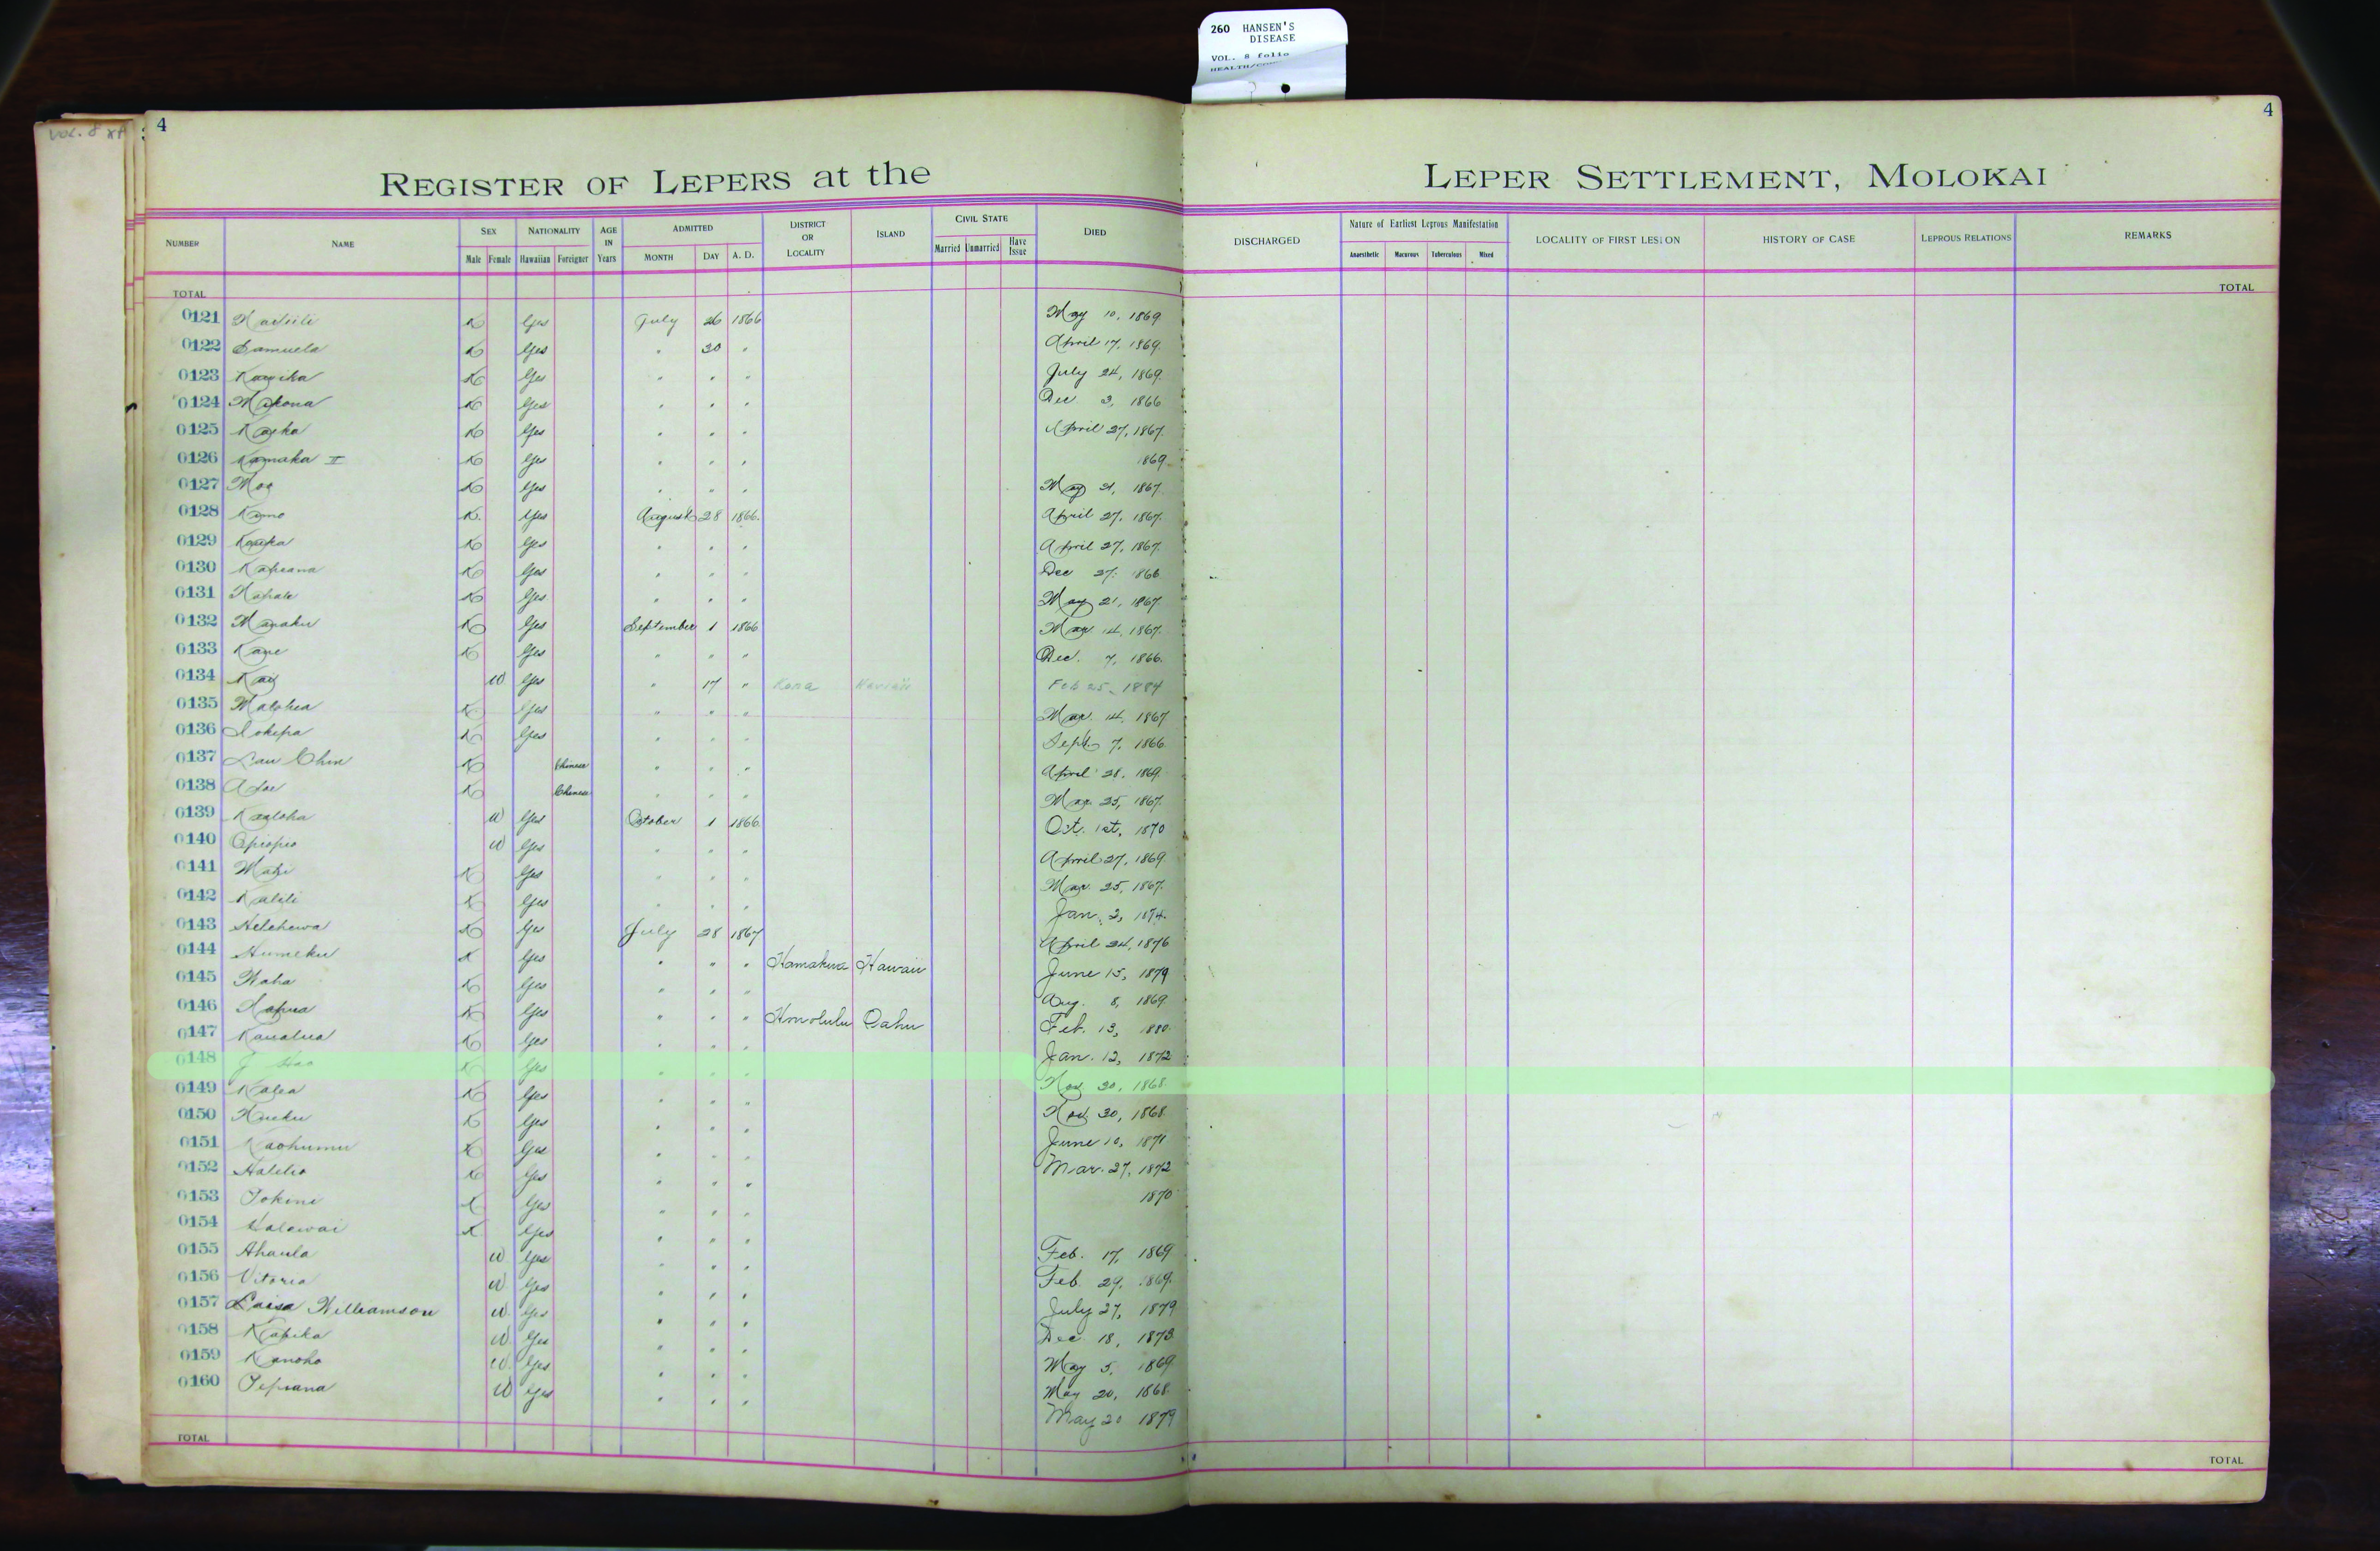 260 HANSEN'S
DISEASE
VOL. 8 folio
4
4
REGISTER OF LEPERS at the LEPER SETTLEMENT, MOLOKAI
NUMBER NAME SEX NATIONALITY AGE IN Years ADMITTED DISTRICT OR LOCALITY ISLAND CIVIL STATE DIED DISCHARGED Nature of Earliest Leprous Manifestation LOCALITY OF FIRST LESION HISTORY OF CASE LEPROUS RELATIONS REMARKS
Male Female Hawaiian Foreigner MONTH DAY A. D. Married Unmarried Have Issue Anaesthetic Macurous Tuberculous Mixed
TOTAL TOTAL
0121 K Yes July 26 1866 May 10, 1869
0122 Samuela K Yes " 30 " April 17, 1869.
0123 K Yes " " " July 24, 1869.
0124 Makona K Yes " " " Dec 3, 1866
0125 K Yes " " " April 27, 1867.
0126 Kamaka II K Yes " " " 1869
0127 Moa K Yes " " " May 21, 1867.
0128 Kamo K. Yes August 28 1866. April 27, 1867.
0129 K Yes " " " April 27, 1867.
0130 Kapiana K Yes " " " Dec 27, 1866
0131 K Yes " " " May 21, 1867.
0132 K Yes September 1 1866 Mar 14, 1867.
0133 Kane K Yes " " " Dec. 7, 1866.
0134 W. Yes " 17 " Kona Hawaii Feb 25, 1884
0135 K Yes " " " Mar. 14, 1867
0136 Iokepa K Yes " " " Sept. 7, 1866.
0137 Lau Chin K Chinese " " " April 28, 1869.
0138 K Chinese " " " Mar 25, 1867.
0139 Kaaloha W Yes October 1 1866. Oct. 1st, 1870
0140 Opiopio W Yes " " " April 27, 1869.
0141 Mahi K Yes " " " Mar. 25, 1867.
0142 Kalili K Yes " " " Jan. 3, 1874.
0143 Helehewa K Yes July 28 1867 April 24, 1876
0144 Humeku K Yes " " " Hamakua Hawaii June 15, 1879
0145 Waha K Yes " " " Aug. 8, 1869.
0146 K Yes " " " Honolulu Oahu Feb. 13, 1880.
0147 Kaualua K Yes " " " Jan. 12, 1872
0148 J K Yes " " " Nov. 30, 1868.
0149 Kalea K Yes " " " Nov. 30, 1868.
0150 K Yes " " " June 10, 1871
0151 Kaohumu K Yes " " " Mar. 27, 1872
0152 Halelio K Yes " " " 1870
0153 Iokini K Yes " " "
0154 Kalawai K Yes " " " Feb. 17, 1869
0155 Ahaula W Yes " " " Feb. 29, 1869.
0156 Vitoria W Yes " " " July 27, 1879
0157 Luisa Williamson W Yes " " " Dec. 18, 1873.
0158 Kapika W. Yes " " " May 5, 1869
0159 Kanoho W. Yes " " " May 20, 1868.
0160 Tepiana W Yes " " " May 20 1879
TOTAL TOTAL